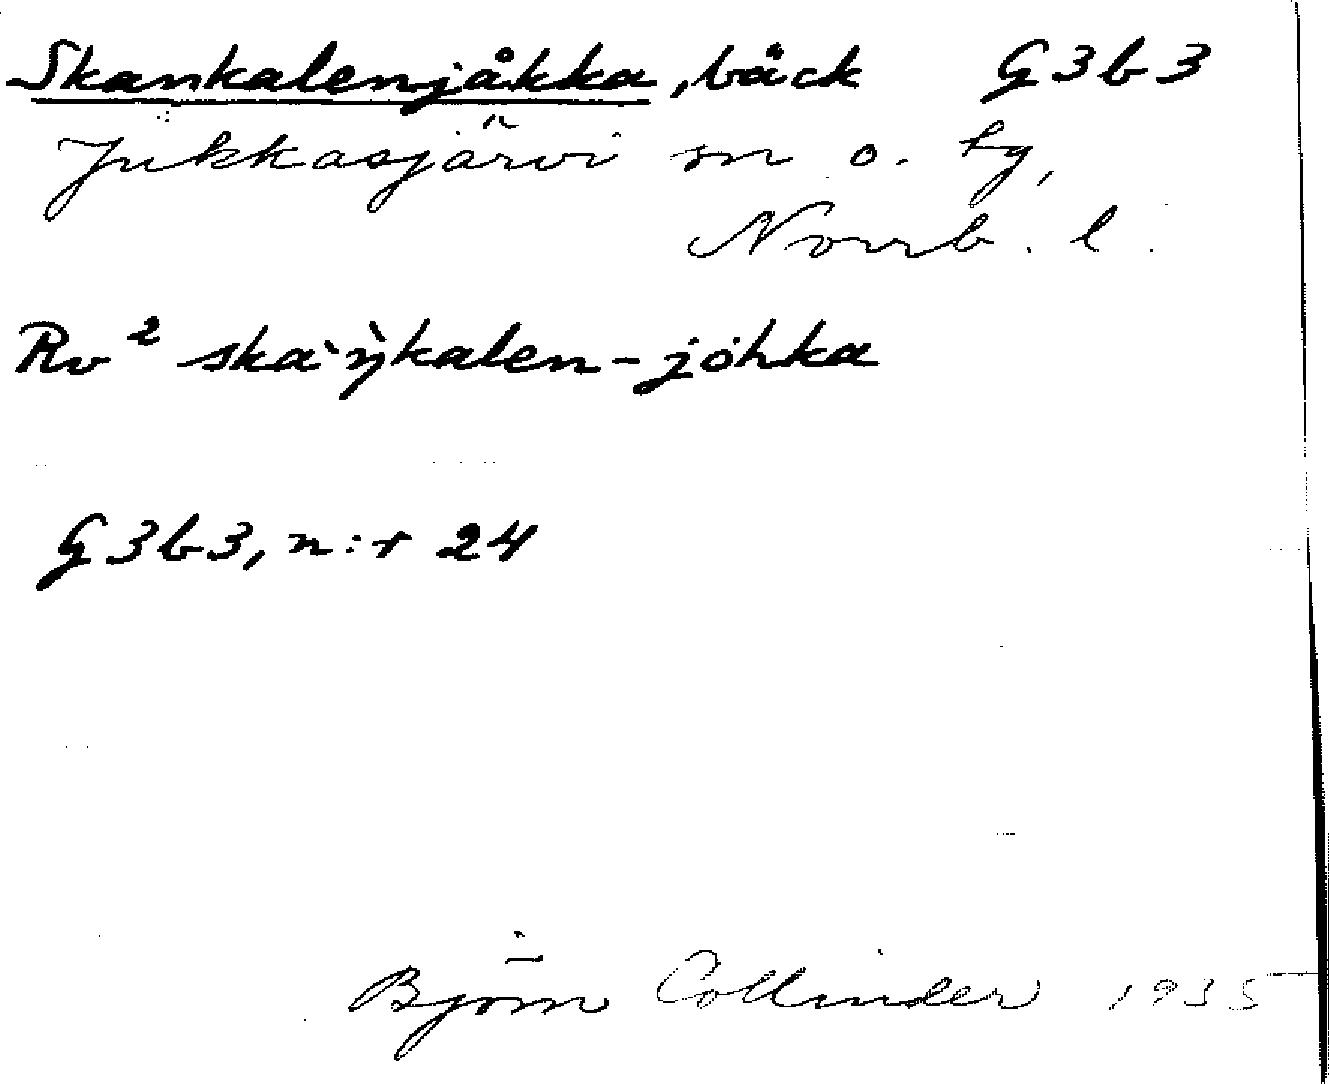 Skankalenjåkka, bäck G3b3
Jukkasjärvi sn o. tg,
Norrb. l.
Rv² ska`ŋ̀kalen-johka
G3b3, n:r 24
Björn Collinder 1935